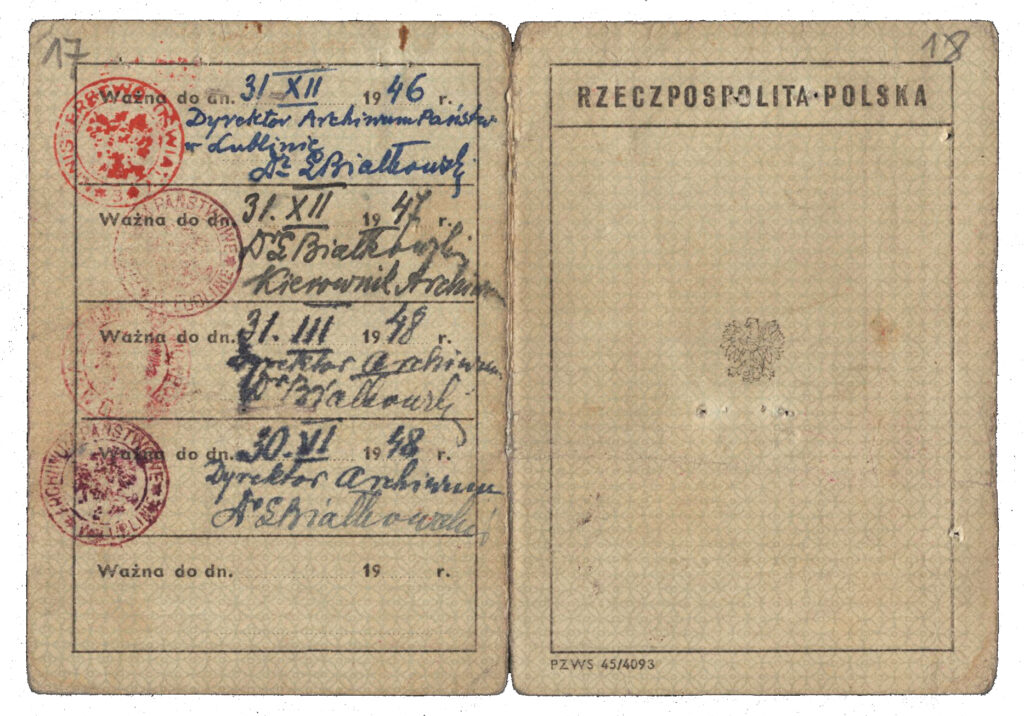 17
Ważna do dn. 31 XII 1946 r.
Dyrektor Archiwum Państw
w Lublinie
Dr LBiałkowski
Ważna do dn. 31. XII 1947 r.
Dr LBiałkowski
Kierownik Archiwum
Ważna do dn. 31. III 1948 r.
Dyrektor Archiwum
Dr Białkowski
Ważna do dn. 30. VI 1948 r.
Dyrektor Archiwum
Dr LBiałkowski
ARCHIWUM PAŃSTWOWE W LUBLINIE
Ważna do dn. 19 r.
18
RZECZPOSPOLITA POLSKA
PZWS 45/4093